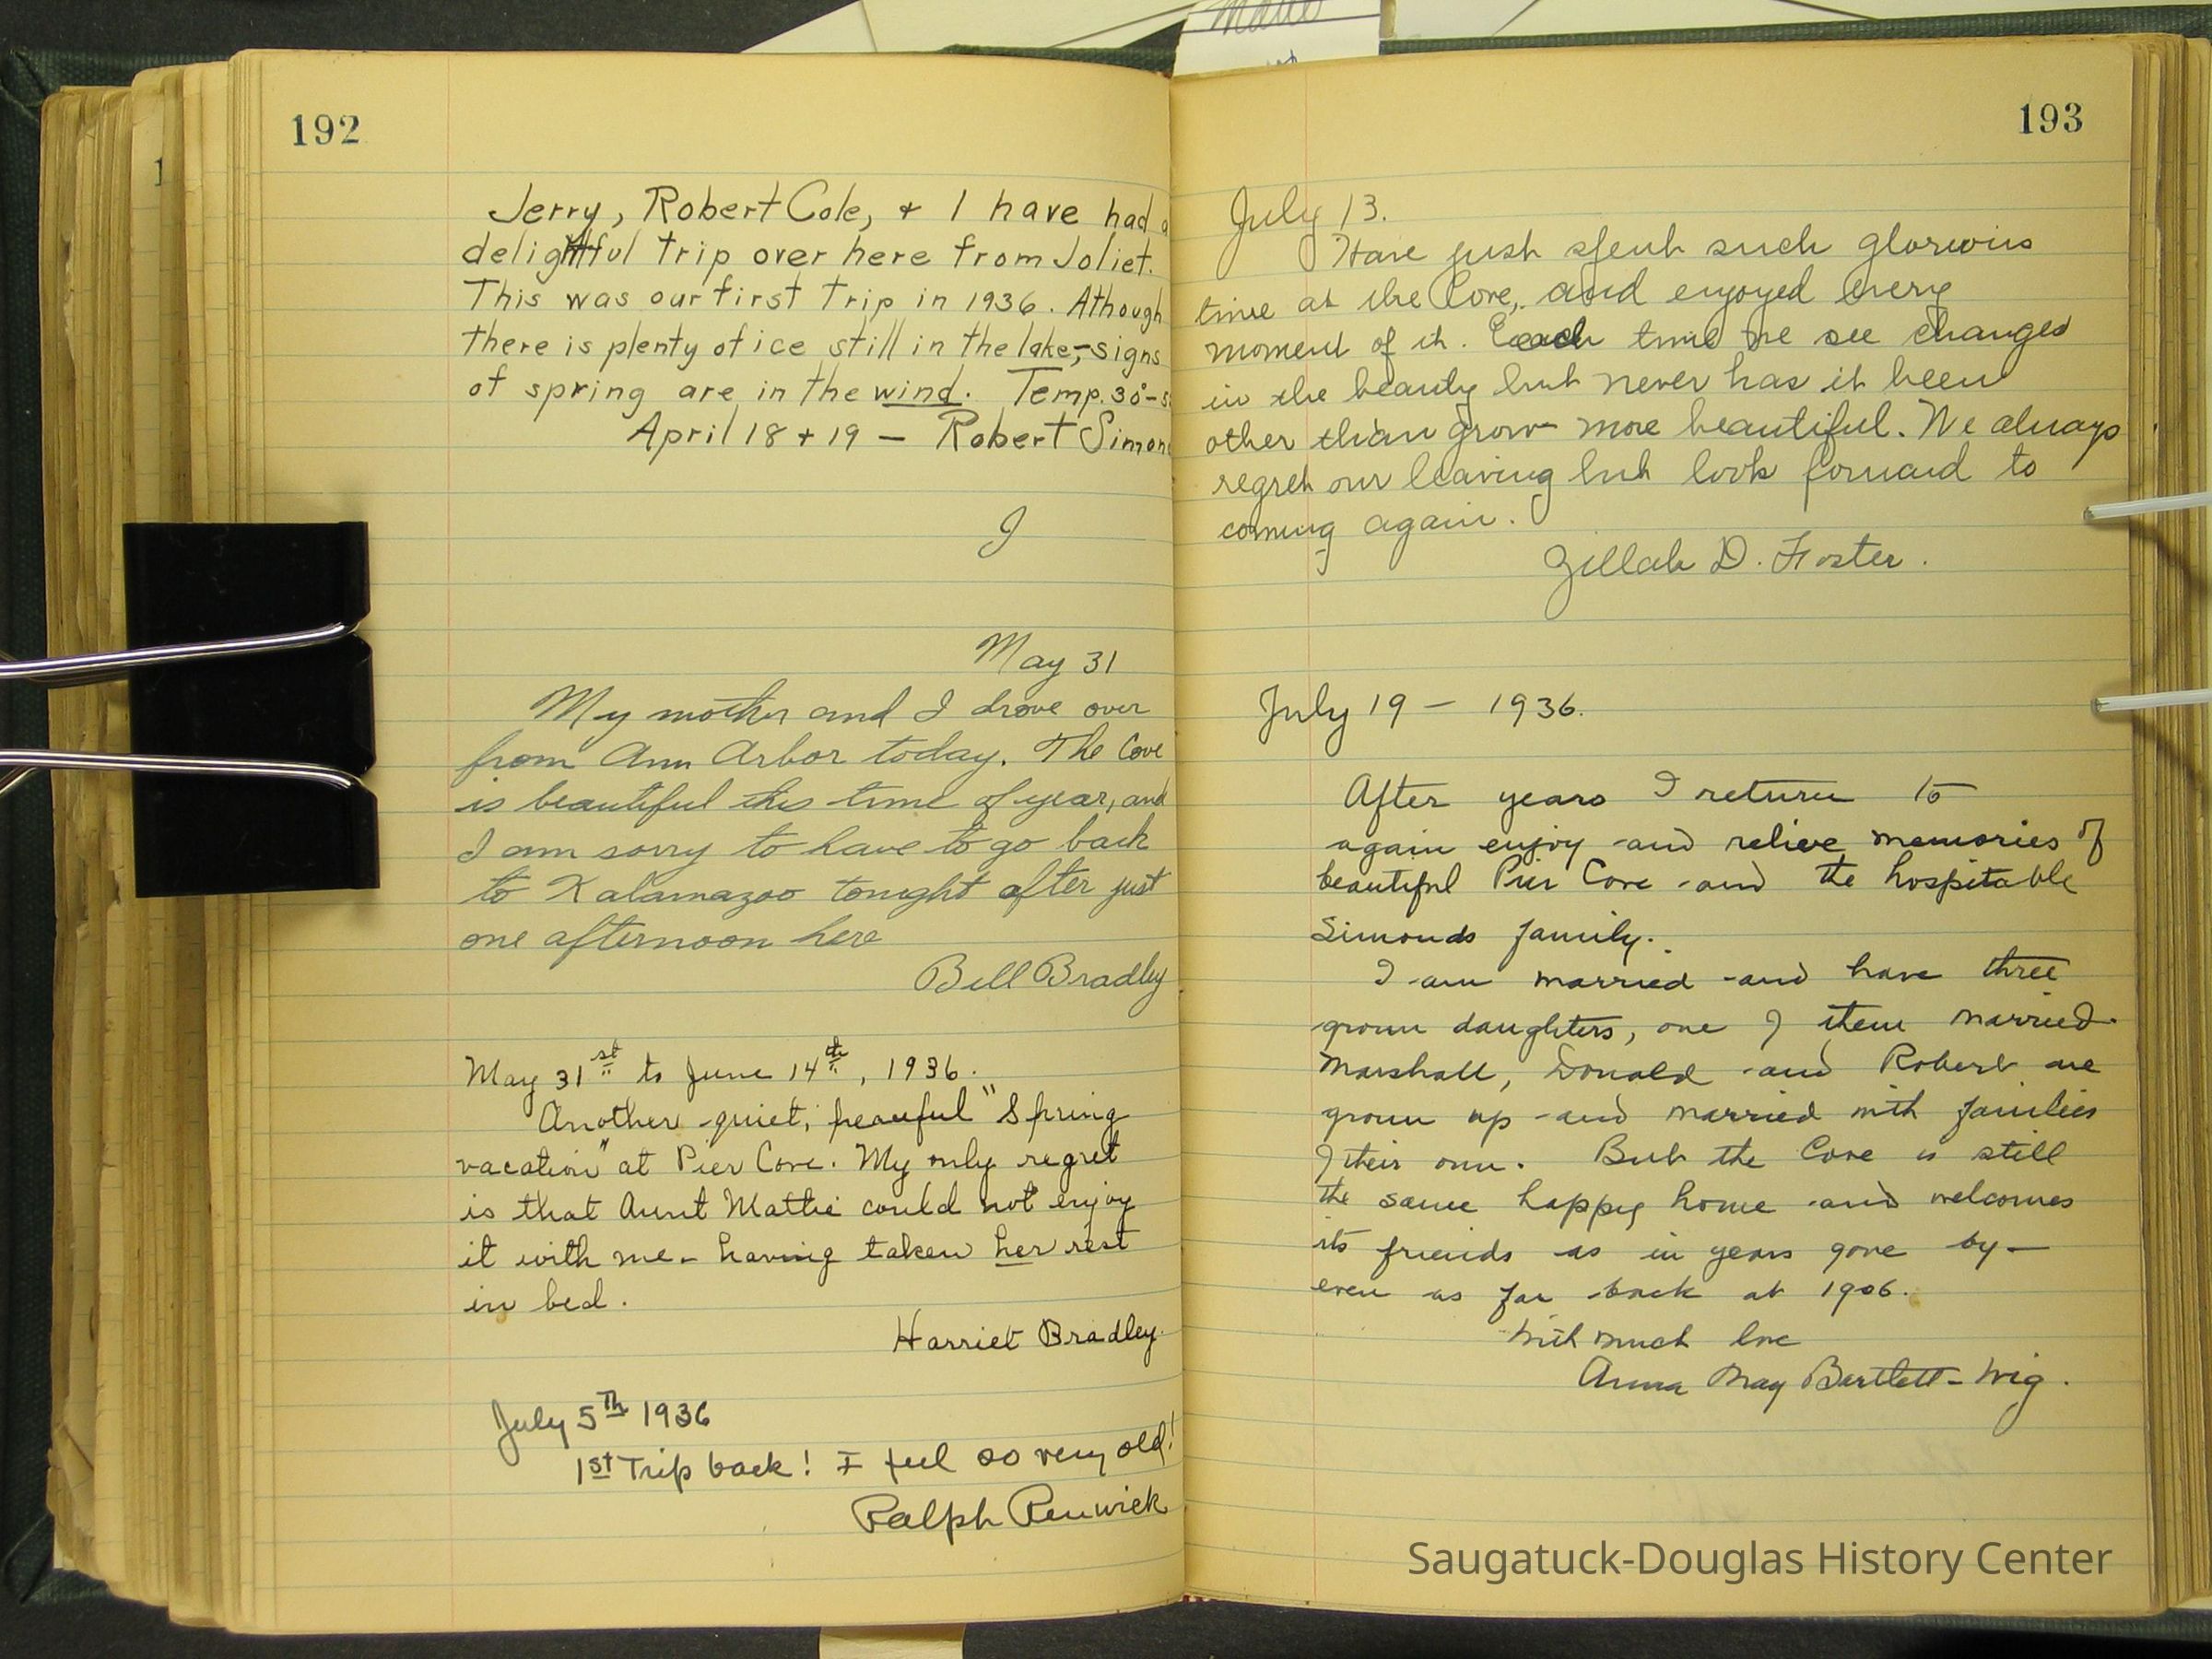 192
Jerry, Robert Cole, + I have had a
delightful trip over here from Joliet.
This was our first trip in 1936. Athough
there is plenty of ice still in the lake,-signs
of spring are in the wind. Temp. 30°-
April 18 + 19 - Robert Simon
I
May 31
My mother and I drove over
from Ann Arbor today. The Cove
is beautiful this time of year, and
I am sorry to have to go back
to Kalamazoo tonight after just
one afternoon here
Bill Bradley
May 31st to June 14th, 1936.
Another quiet, peaceful "Spring
vacation" at Pier Cove. My only regret
is that Aunt Mattie could not enjoy
it with me - having taken her rest
in bed.
Harriet Bradley.
July 5th 1936
1st Trip back! I feel so very old!
Ralph Renwick
193
July 13.
Have just spent such glorious
time at the Cove, and enjoyed every
moment of it. Each time we see changes
in the beauty but never has it been
other than grow more beautiful. We always
regret our leaving but look forward to
coming again.
Zillah D. Foster.
July 19 - 1936.
After years I return to
again enjoy and relive memories of
beautiful Pier Cove and the hospitable
Simonds family.
I am married and have three
grown daughters, one of them married.
Marshall, Donald and Robert are
grown up and married with families
of their own. But the Cove is still
the same happy home and welcomes
its friends as in years gone by -
even as far back at 1906.
With much love
Anna May Bartlett-Wig.
Saugatuck-Douglas History Center